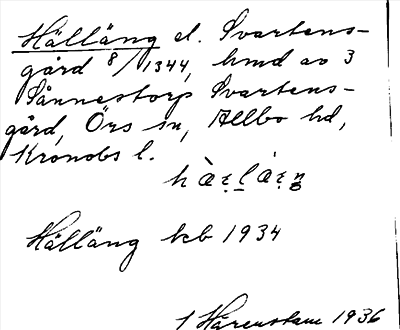 Hälläng el. Svartens-
gård 8/1344, hmd av 3
Sånnestorp Svartens-
gård, Örs sn, Allbo hd,
Kronobs l.
Hälläng kb 1934
1 Hårenstam 1936